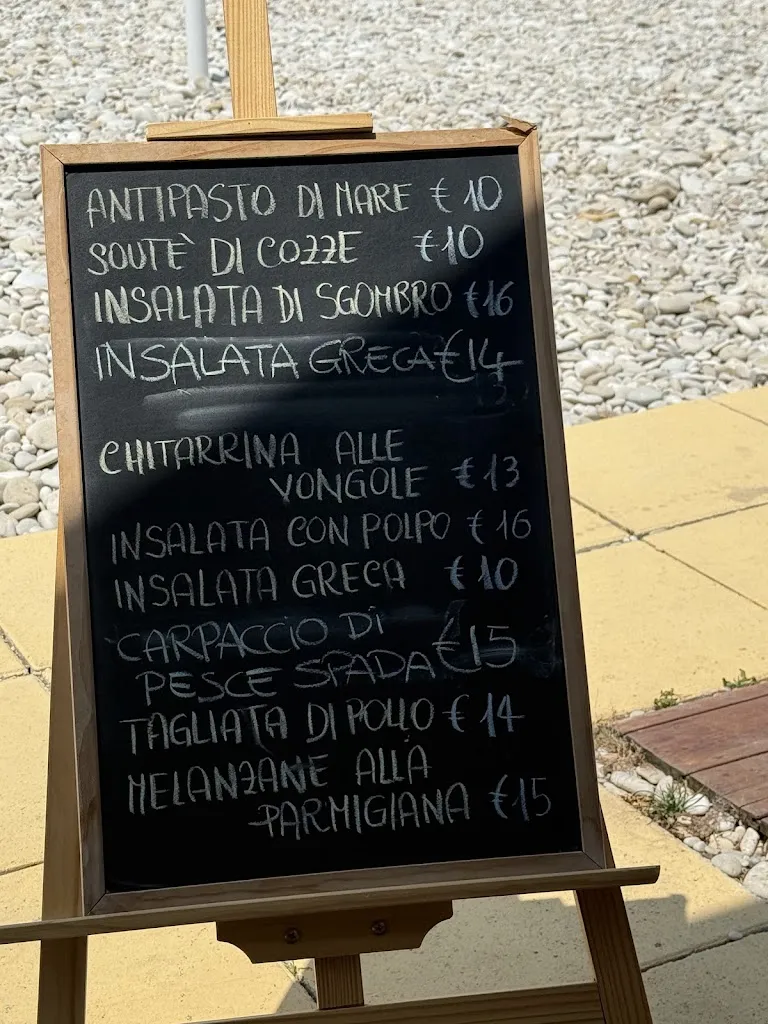 ANTIPASTO DI MARE € 10
SOUTÈ DI COZZE €10
INSALATA DI SGOMBRO €16
INSALATA GRECA €14
CHITARRINA ALLE
VONGOLE €13
INSALATA CON POLPO € 16
INSALATA GRECA € 10
CARPACCIO DI
PESCE SPADA €15
TAGLIATA DI POLLO € 14
MELANZANE ALLA
PARMIGIANA €15